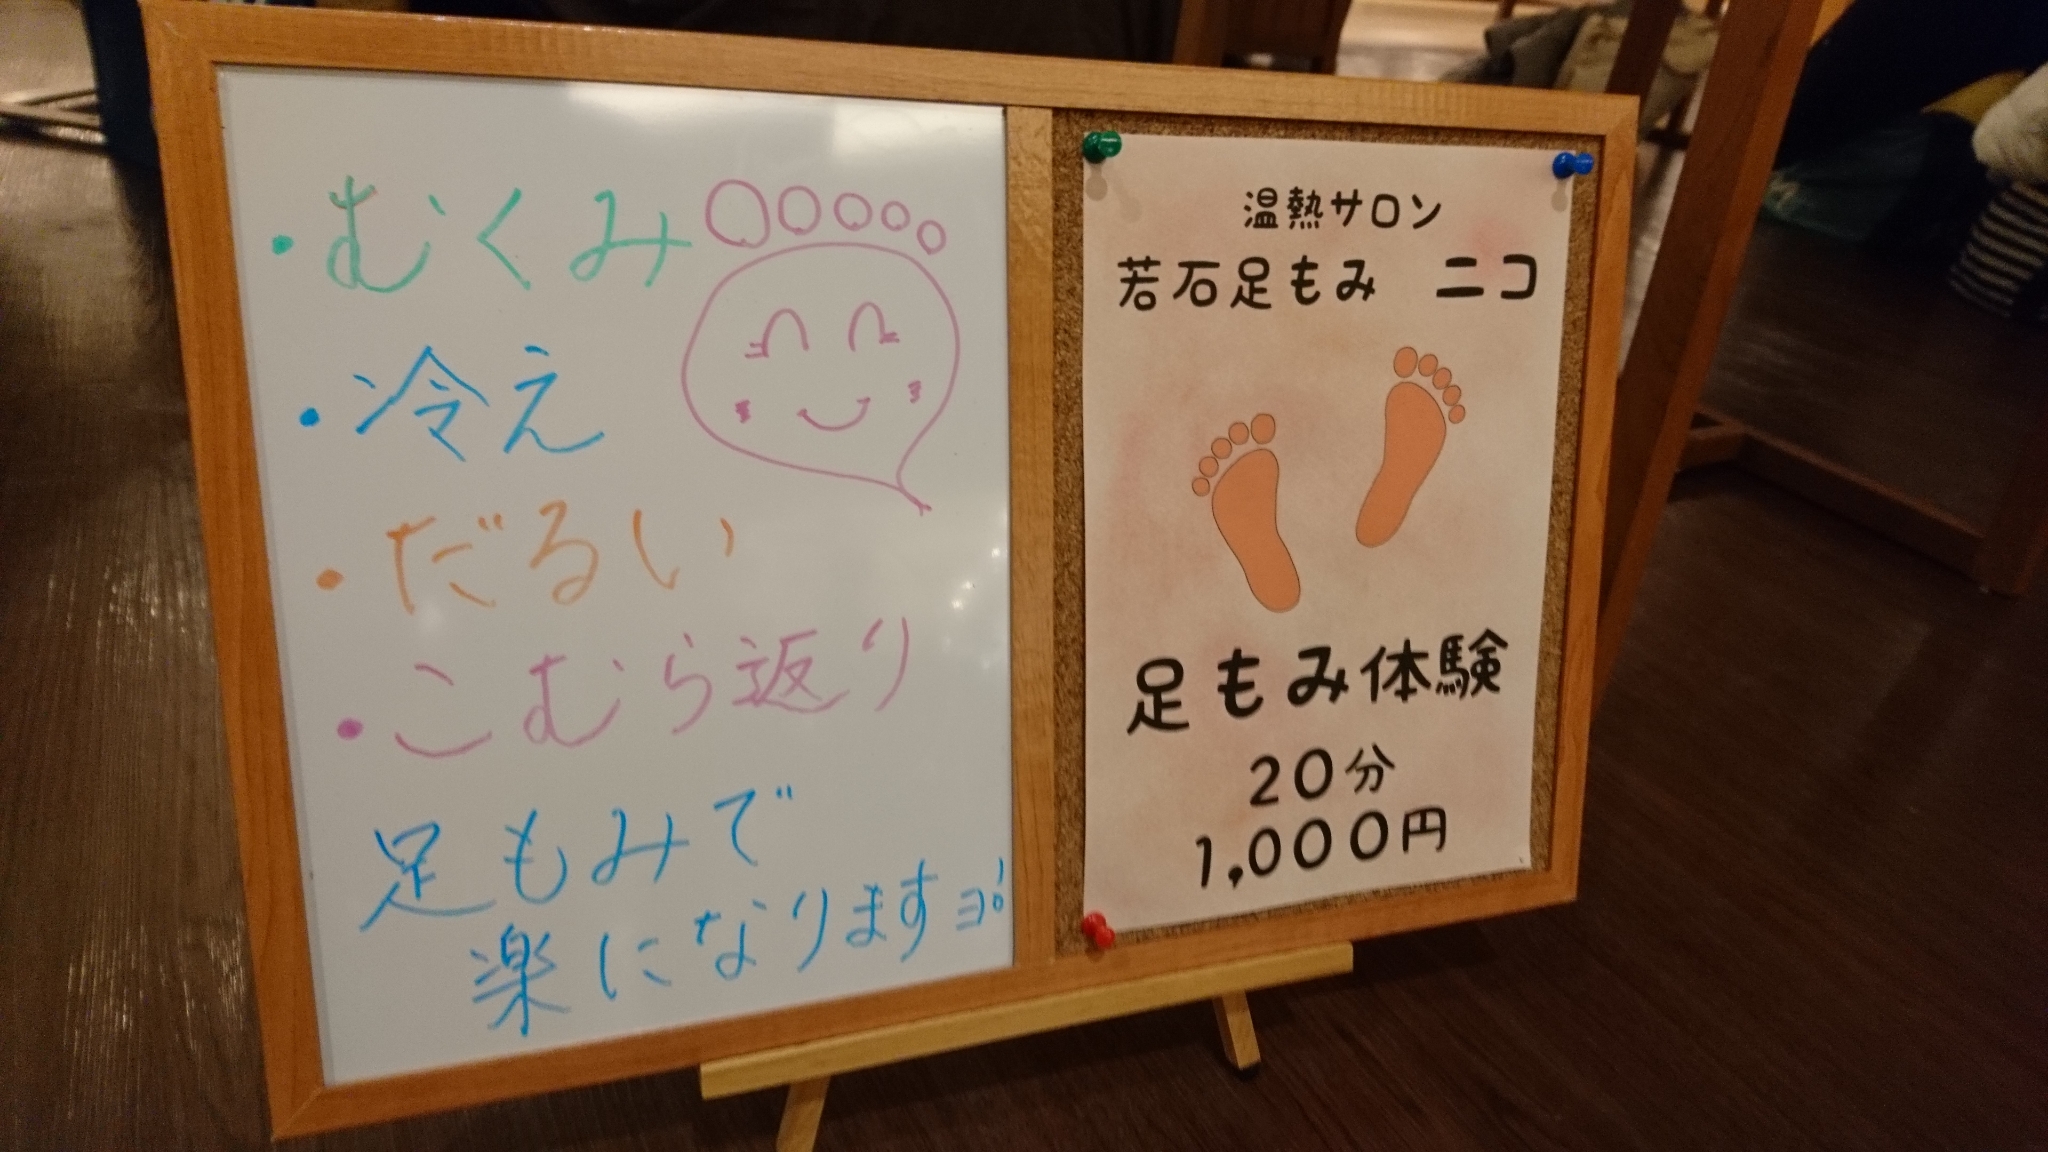 ・むくみ
・冷え
・だるい
・こむら返り
足もみで
楽になりますヨ!
温熱サロン
若石足もみ ニコ
足もみ体験
20分
1,000円